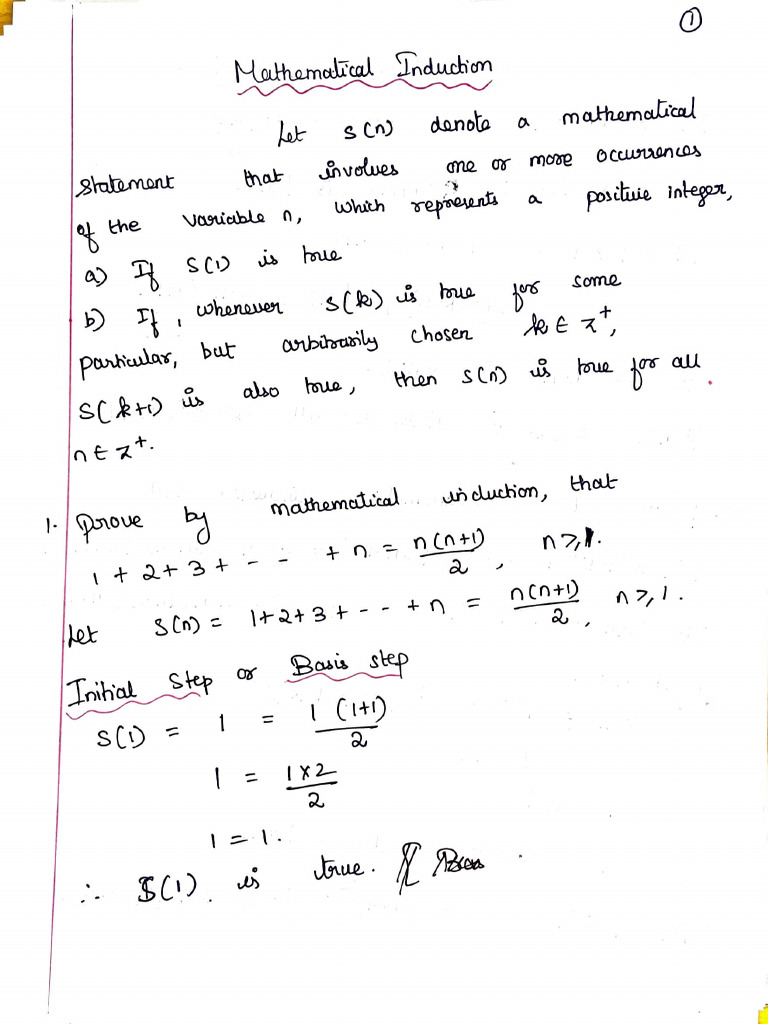 ①
Mathematical Induction
Let S(n) denote a mathematical
statement that involves one or more occurrences
of the variable n, which represents a positive integer,
a) If S(1) is true
b) If, whenever S(k) is true for some
particular, but arbitrarily chosen k ∈ z⁺,
S(k+1) is also true, then S(n) is true for all
n ∈ z⁺.
1. Prove by mathematical induction, that
1 + 2 + 3 + - - - + n = n(n+1)/2, n ≥ 1.
Let S(n) = 1+2+3+ - - + n = n(n+1)/2, n ≥ 1.
Initial Step or Basis step
S(1) = 1 = 1 (1+1)/2
1 = 1×2/2
1 = 1.
∴ S(1) is true.